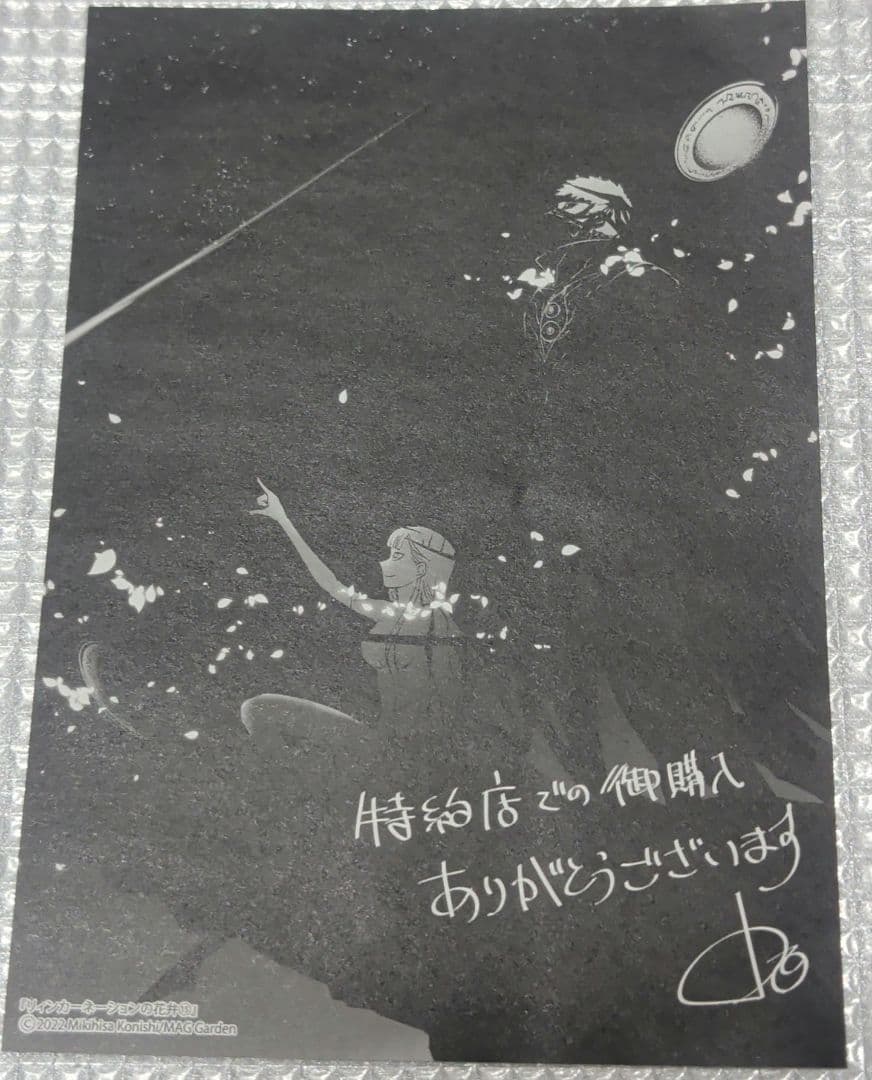 特約店での御購入
ありがとうございます
『リィンカーネーションの花弁⑬』
Ⓒ2022 Mikihisa Konishi/MAG Garden